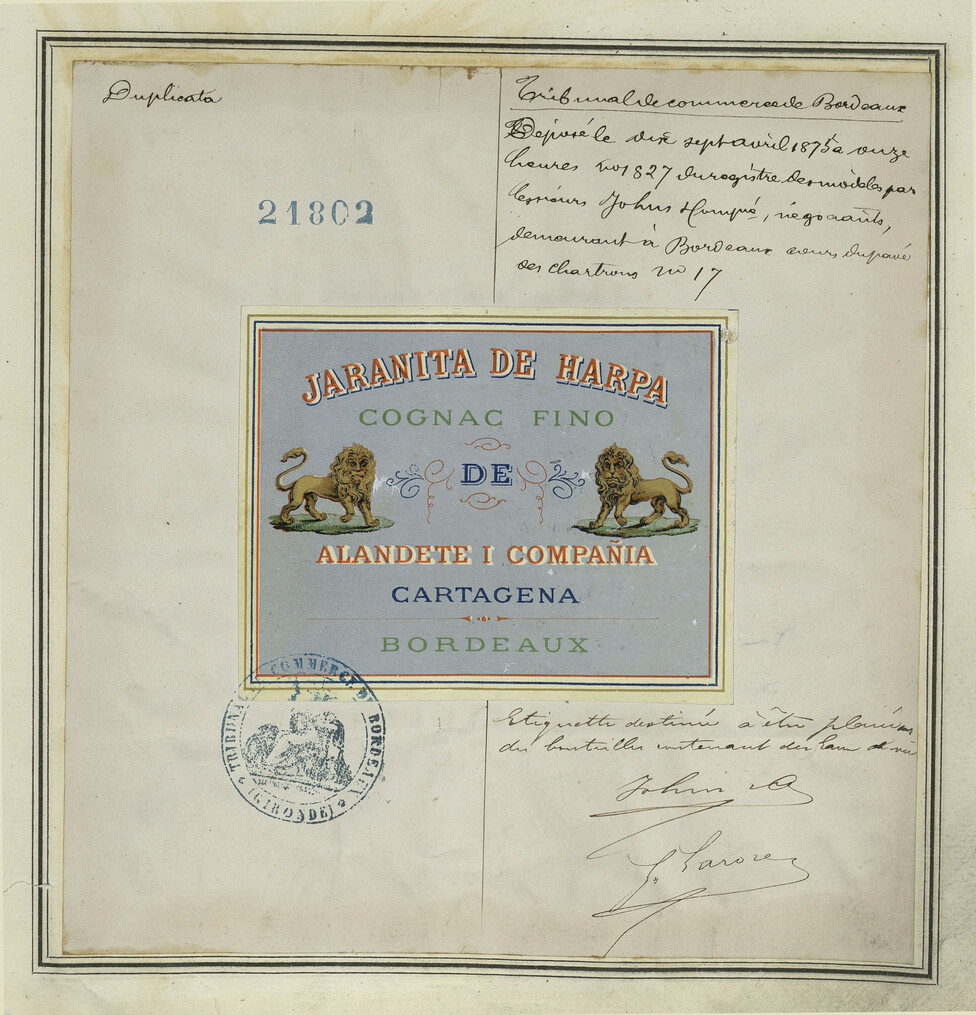 Duplicata
Tribunal de commerce de Bordeaux
Déposé le dix sept avril 1875 à onze
heures no 1827 du registre des modèles par
les sieurs Johns , négociants,
demeurant à Bordeaux cours du pavé
des chartrons no 17
21802
JARANITA DE HARPA
COGNAC FINO
DE
ALANDETE I COMPAÑIA
CARTAGENA
BORDEAUX
TRIBUNAL DE COMMERCE DE BORDEAUX
(GIRONDE)
Etiquette destinée à être placée sur
des bouteilles contenant des Eaux de vie